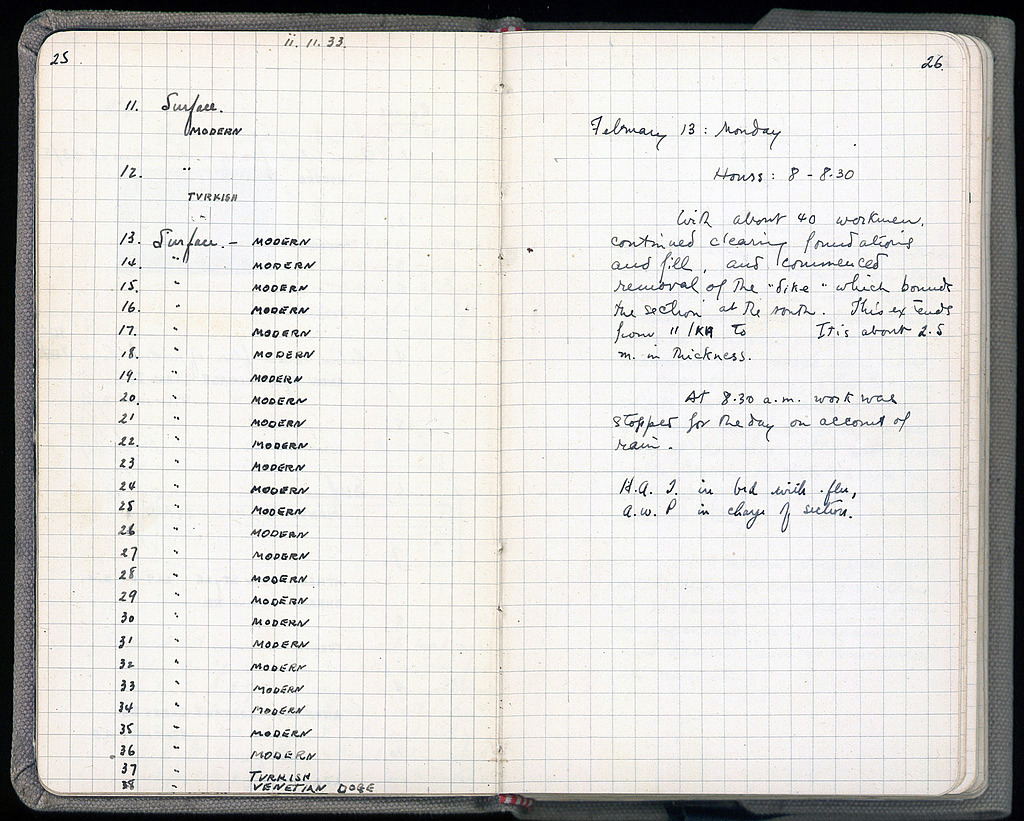 25
ii. 11. 33.
11. Surface.
MODERN
12. "
TURKISH
"
13. Surface. - MODERN
14. " MODERN
15. " MODERN
16. " MODERN
17. " MODERN
18. " MODERN
19. " MODERN
20. " MODERN
21 " MODERN
22. " MODERN
23 " MODERN
24 " MODERN
25 " MODERN
26 " MODERN
27 " MODERN
28 " MODERN
29 " MODERN
30 " MODERN
31 " MODERN
32 " MODERN
33 " MODERN
34 " MODERN
35 " MODERN
36 " MODERN
37 " TURKISH
38 " VENETIAN DOGE
26.
February 13: Monday
Hours: 8 - 8.30
With about 40 workmen,
continued clearing foundations
and fill, and commenced
removal of the "dike" which bounds
the section at the south. This extends
from 11/KA to It is about 2.5
m. in thickness.
At 8.30 a.m. work was
stopped for the day on account of
rain.
H.A.T. in bed with flu,
A.W.P in charge of section.